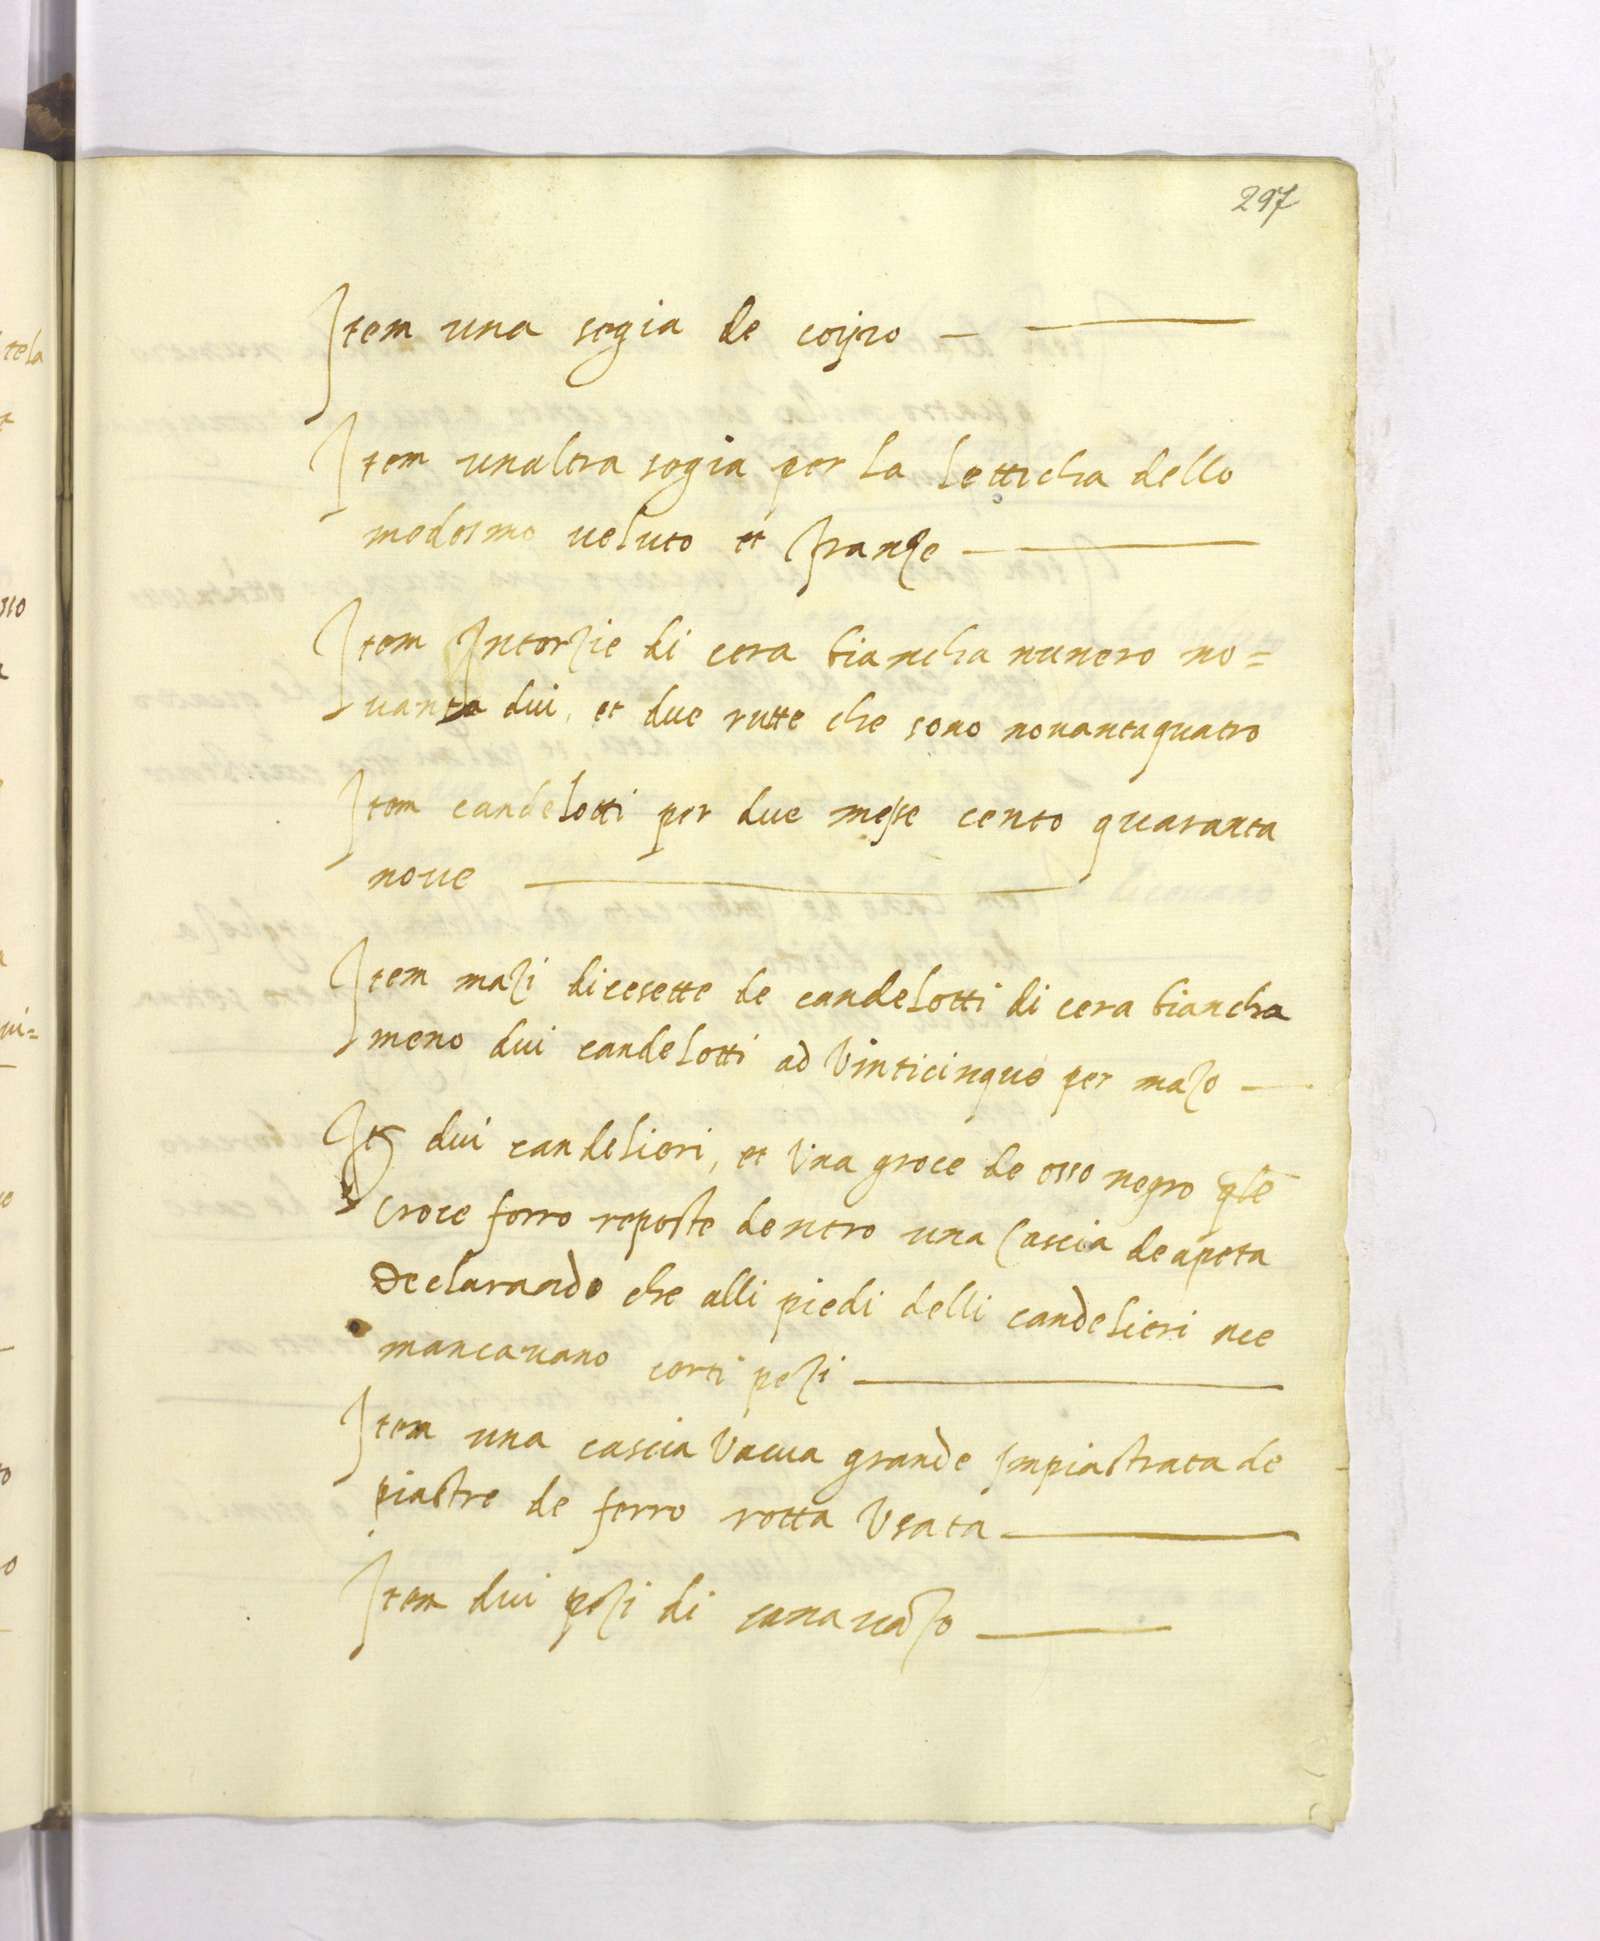 297
Item una segia de coijro
Item unaltra segia per la letticha dello
medesmo veluto et franze
Item Intorzie di cera biancha numero no=
vanta dui, et due rutte che sono novantaquatro
Item candelotti per due messe cento quaranta
nove
Item mazi dicesette de candelotti di cera biancha
meno dui candelotti ad vinticinque per mazo
It dui candelieri, et una groce de osso negro qle
croce forro reposte dentro una cascia de apeta
Declarando che alli piedi delli candelieri nce
mancavano certi pezi
Item una cascia vacua grande impiastrata de
piastre de ferro rotta usata
Item dui pezi di canavazo